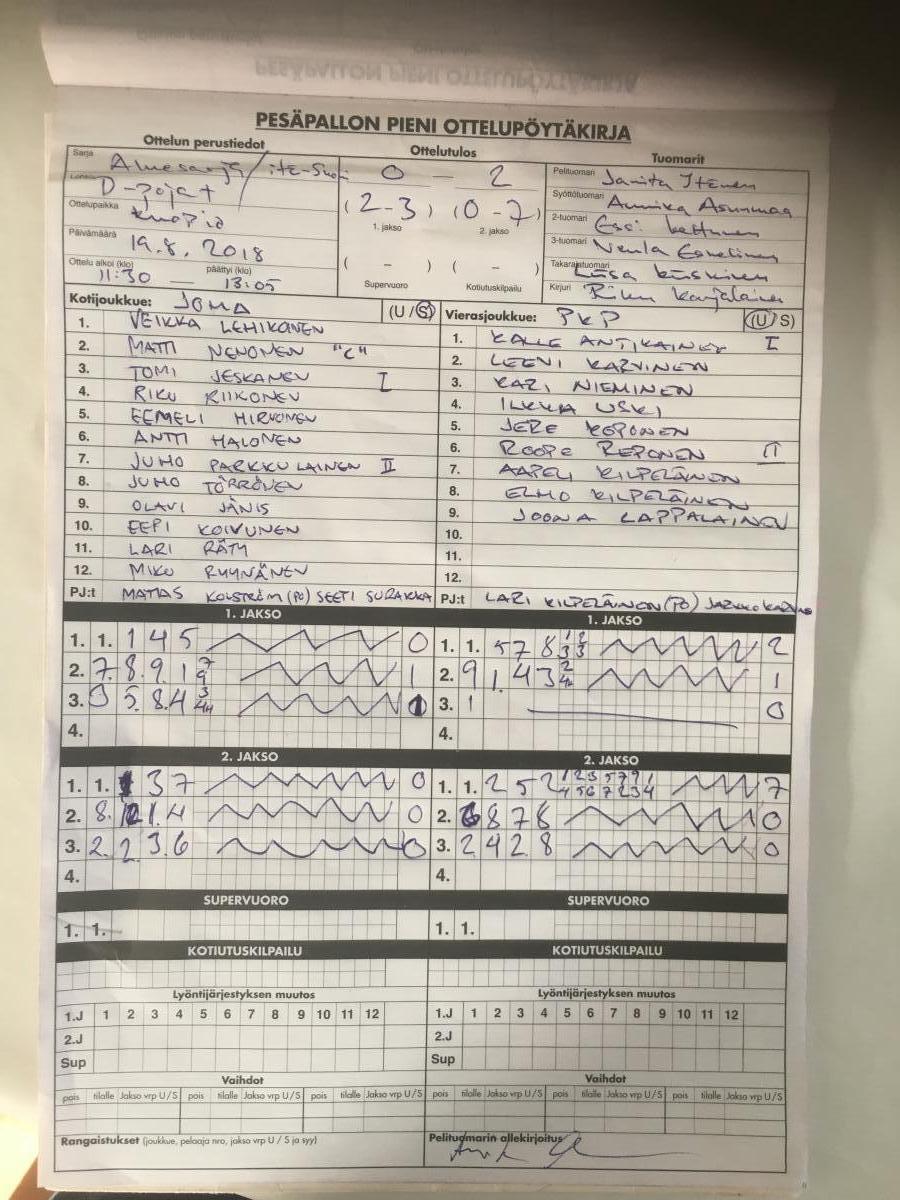 PESÄPALLON PIENI OTTELUPÖYTÄKIRJA
Ottelun perustiedot
Ottelutulos
Tuomarit
Sarja
Aluesarja / itä-Suomi
D-pojat
Ottelupaikka
Kuopio
Päivämäärä
19.8. 2018
Ottelu alkoi (klo)
päättyi (klo)
11:30 — 13:05
0 — 2
(2-3) (0-7)
1. jakso
2. jakso
( - ) ( - )
Supervuoro
Kotiutuskilpailu
Pelituomari
Syöttötuomari Annika Asunmaa
2-tuomari Essi Kettunen
3-tuomari
Takarajatuomari
Kirjuri
Kotijoukkue: JOMA (U/S)
1. VEIKKA LEHIKOINEN
2. MATTI NENONEN "C"
3. TOMI JESKANEN I
4. RIKU RIIKONEN
5. EEMELI HIRVONEN
6. ANTTI HALONEN
7. JUHO PARKKULAINEN II
8. JUHO TÖRRÖNEN
9. OLAVI JÄNIS
10. EEPI KOIVUNEN
11. LARI RÄTY
12. MIKO RUYNÄNEN
PJ:t MATIAS KOLSTRÖM (PJ) SEETI SURAKKA
Vierasjoukkue: PKP (U/S)
1. KALLE ANTIKAINEN I
2. LEEVI KARVINEN
3. KARI NIEMINEN
4. ILKKA USKI
5. JERE KOPONEN
6. ROOPE REPONEN II
7. AAPELI KILPELÄINEN
8. ELMO KILPELÄINEN
9. JOONA LAPPALAINEN
10.
11.
12.
PJ:t LARI KILPELÄINEN (PJ)
1. JAKSO
1. 1. 1 4 5 0
2. 7. 8. 9. 1 7 9 1
3. 5. 8. 4
4.
1. JAKSO
1. 1. 5 7 8 1 2 3 3 2
2. 9 1. 4 3 1
3. 1 0
4.
2. JAKSO
1. 1. 3 7 0
2. 8. 1. 4 0
3. 2. 2. 3. 6 0
4.
2. JAKSO
1. 1. 2 5 2 7
2. 6 8 7 8 0
3. 2 4 2 8 0
4.
SUPERVUORO
1. 1.
SUPERVUORO
1. 1.
KOTIUTUSKILPAILU
KOTIUTUSKILPAILU
Lyöntijärjestyksen muutos
1.J 1 2 3 4 5 6 7 8 9 10 11 12
2.J
Sup
Lyöntijärjestyksen muutos
1.J 1 2 3 4 5 6 7 8 9 10 11 12
2.J
Sup
Vaihdot
pois tilalle Jakso vrp U/S pois tilalle Jakso vrp U/S pois tilalle Jakso vrp U/S
Vaihdot
pois tilalle Jakso vrp U/S pois tilalle Jakso vrp U/S pois tilalle Jakso vrp U/S
Rangaistukset (joukkue, pelaaja nro, jakso vrp U / S ja syy)
Pelituomarin allekirjoitus